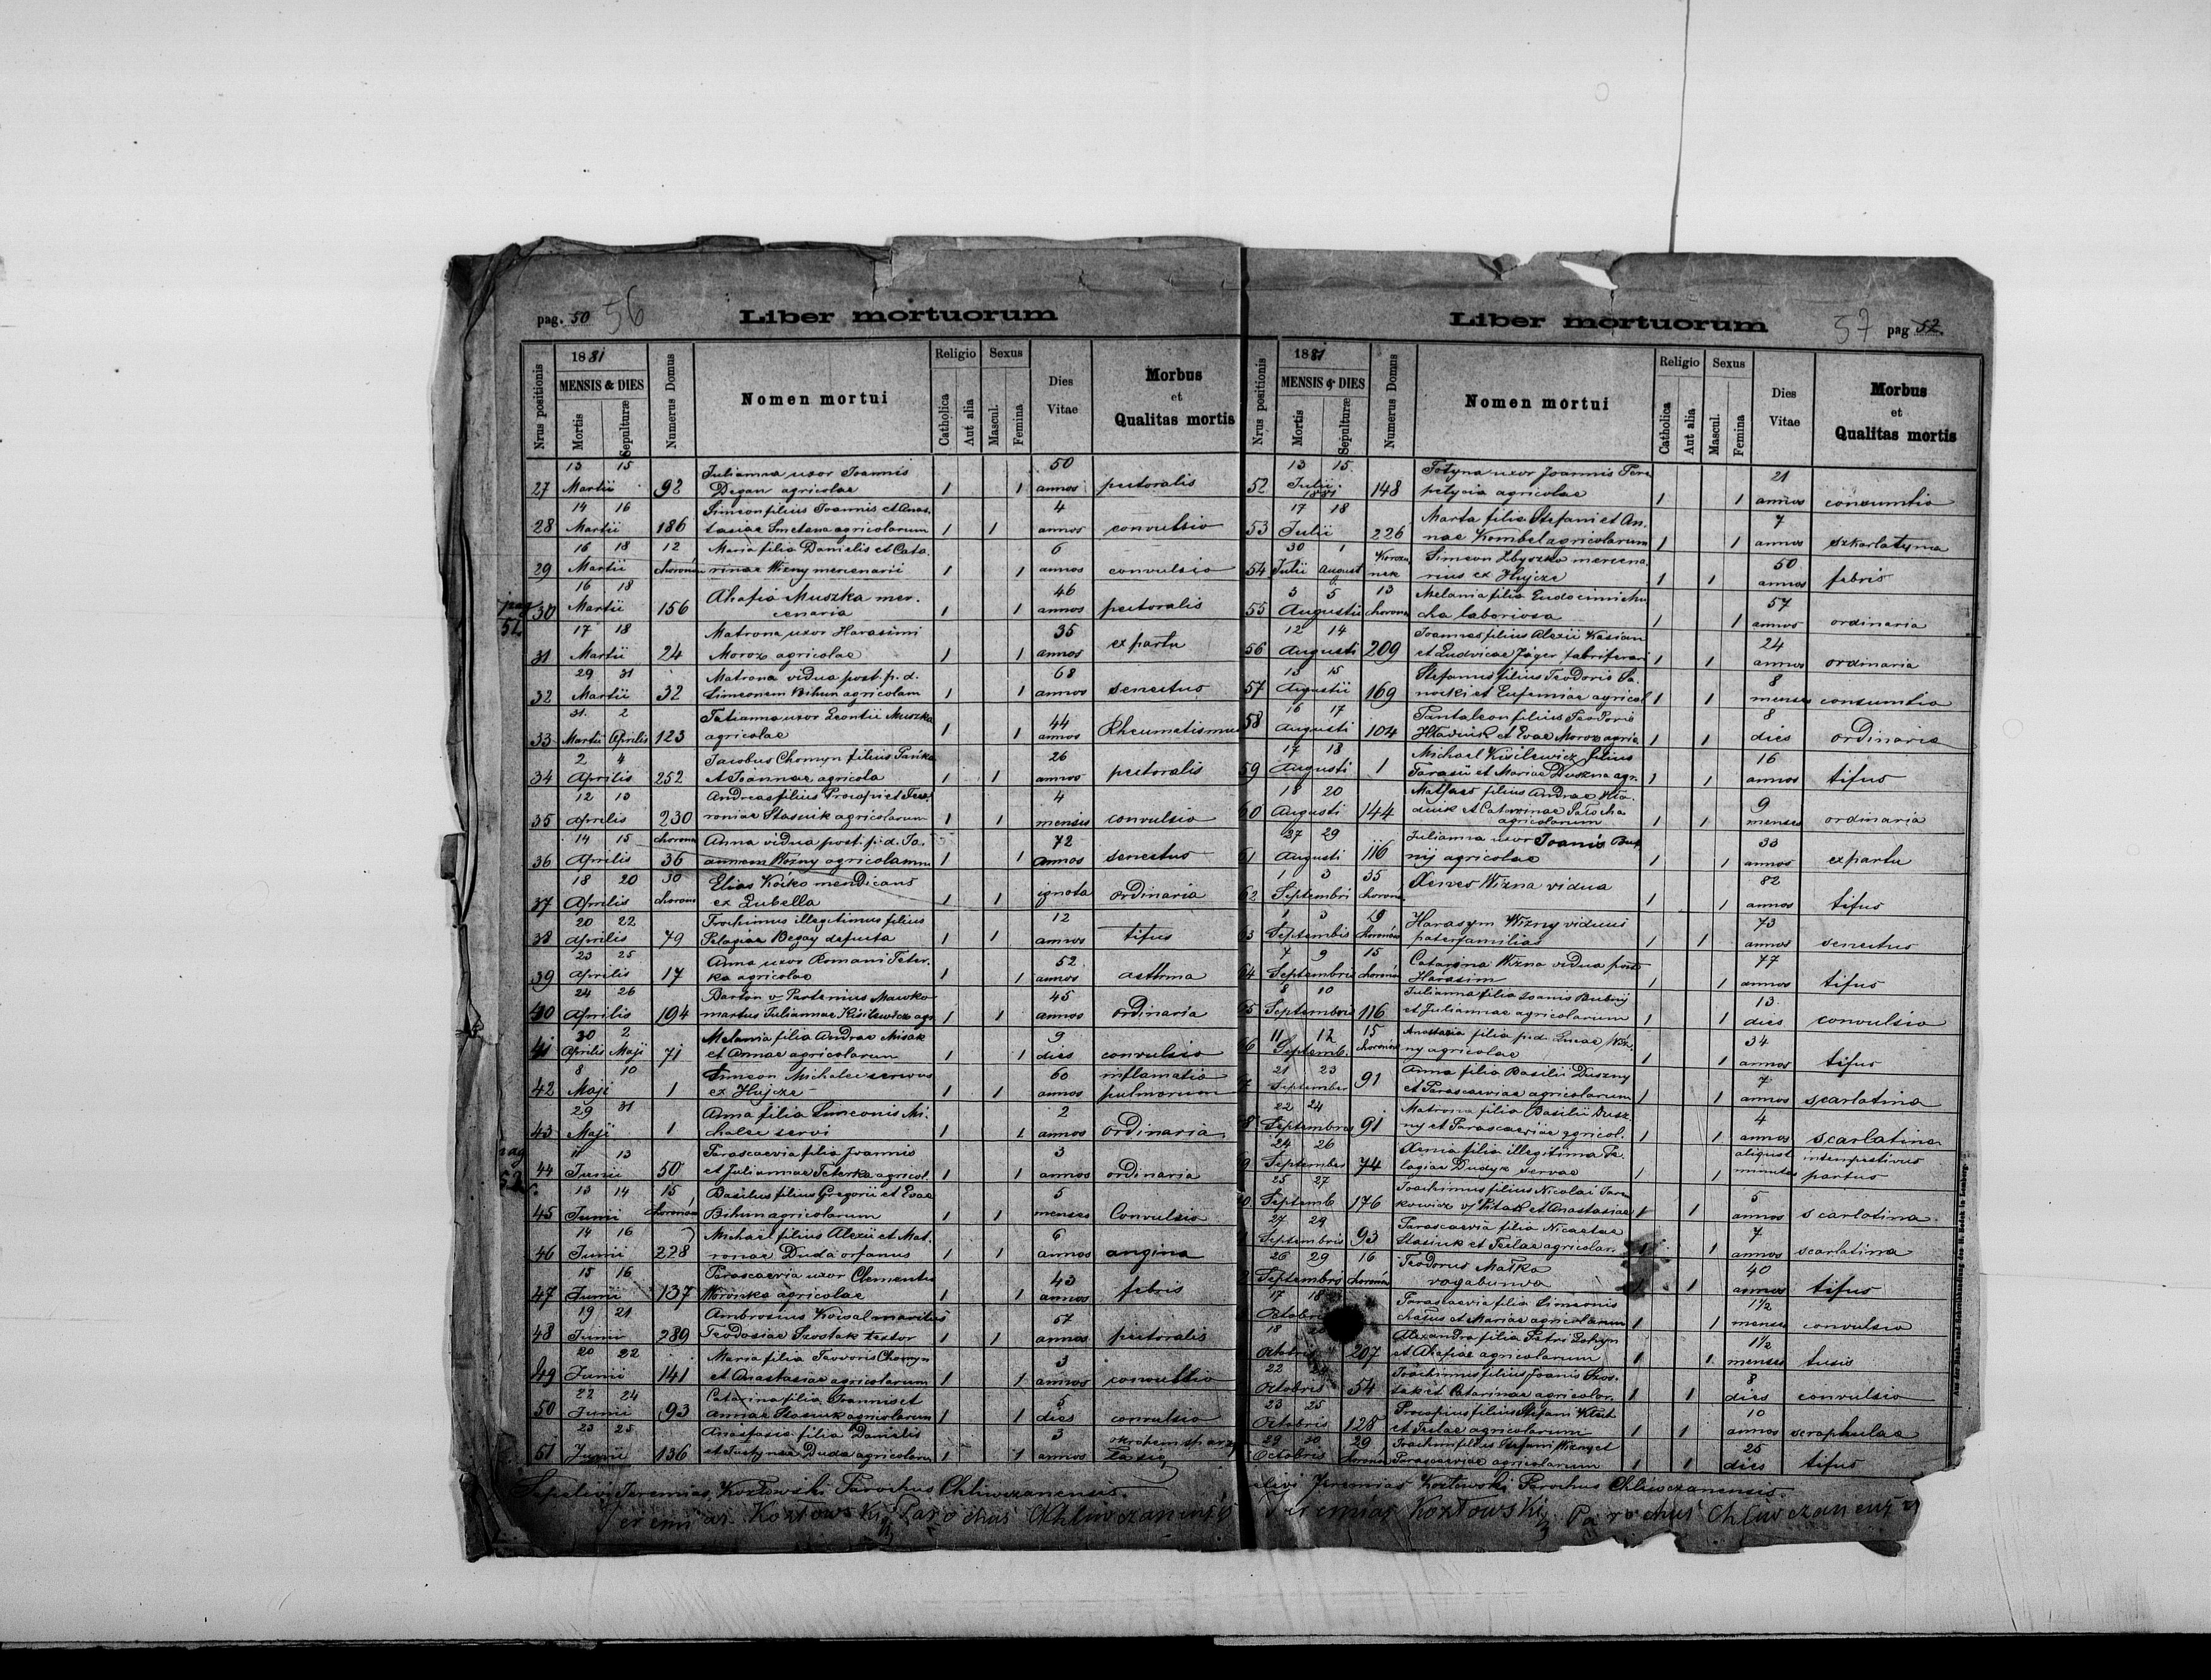 pag. 50 56
Liber mortuorum
Nrus positionis
1881
MENSIS & DIES
Mortis
Sepulturæ
Numerus Domus
Nomen mortui
Religio
Catholica
Aut alia
Sexus
Mascul.
Femina
Dies
Vitae
Morbus
et
Qualitas mortis
13 15 Julianna uxor Joannis 50
27 Martii 92 Degan agricolae 1 1 annos pectoralis
14 16 Simeon filius Joannis et Anas. 4
28 Martii 186 tasiae Smetana agricolarum 1 1 annos convulsio
16 18 12 Maria filia Danielis et Cata. 6
29 Martii choronów rinae Wizny mercenarii 1 1 annos convulsio
16 18 Ahafia Muszka mer. 46
pag 30 Martii 156 cenaria 1 1 annos pectoralis
51.
17 18 Matrona uxor Harasimi 35
31 Martii 24 Moroz agricolae 1 1 annos ex partu
29 31 Matrona vidua post. p. d. 68
32 Martii 32 Simeonem Bihun agricolam 1 1 annos senectus
31. 2 Tatianna uxor Leontii Muszka 44
33 Martii Aprilis 123 agricolae 1 1 annos Rheumatismus
2 4 Jacobus Chomyn filius Pańka 26
34 Aprilis 252 et Joannae agricola 1 1 annos pectoralis
12 13 Andreas filius Procopi et Few. 4
35 Aprilis 230 roniae Stasiuk agricolarum 1 1 mensis convulsio
14 15 choronów Anna vidua post. p. d. Jo. 72
36 Aprilis 36 annem Wizny agricolamm 1 1 annos senectus
18 20 30 Elias Kóiko mendicans
37 Aprilis choronów ex Lubella 1 1 ignota ordinaria
20 22 Trochimus illegitimus filius 12
38 Aprilis 79 Pelagiae Begay defucta 1 1 annos tifus
23 25 Anna uxor Romani Teter. 52
39 Aprilis 17 ka agricolae 1 annos asthma
24 26 Barton v. Partenius Mawko 45
40 Aprilis 194 martus Juliannae Kisilewicz agr. 1 1 annos ordinaria
30 2 Melania filia Andrae Misak 9
41 Aprilis Maji 71 et Annae agricolarum 1 1 dies convulsio
8 10 Simeon Michalec servus 60 inflamatio
42 Maji 1 ex Hujcze 1 1 annos pulmorum
29 31 Anna filia Simeonis Mi. 2
43 Maji 1 chalec servi 1 1 annos ordinaria
11 13 Parascaevia filia Joannis 3
44 Junii 50 et Juliannae Teterka agricol. 1 1 annos ordinaria
13 14 15 Basilius filius Gregorii et Evae 5
45 Junii choronów Bihun agricolarum 1 1 menses Convulsio
14 16 Michaël filius Alexii et Mat. 6
46 Junii 228 ronae Duda orfanus 1 1 annos angina
15 16 Parascaevia uxor Clementis 43
47 Junii 137 agricolae 1 1 annos febris
19 21 Ambrosius Kowal maritus 57
48 Junii 289 Teodosiae Szostak textor 1 1 annos pectoralis
20 22 Maria filia Teodoris Chomyn 3
49 Junii 141 et Anastasiae agricolarum 1 1 annos convulsio
22 24 Catarina filia Joannis et 5
50 Junii 93 Annae Stasiuk agricolarum 1 1 dies convulsio
23 25 Anastasia filia Danielis 3
51 Junii 136 et Justynae Duda agricolarum 1 1 annos
Sepelivi Jeremias Kozłowski Parochus Chliwczanensis.
Jeremias Kozłowski Parochus Chliwczanensis
Liber mortuorum
57 pag 52
Nrus positionis
1881
MENSIS & DIES
Mortis
Sepulturæ
Numerus Domus
Nomen mortui
Religio
Catholica
Aut alia
Sexus
Mascul.
Femina
Dies
Vitae
Morbus
et
Qualitas mortis
13 15. Fotyna uxor Joannis Pere 21
52 Julii 1881 148 petycia agricolae 1 1 annos consumtio
17 18 Marta filia Stefani et An. 7
53 Julii 226 nae Kombel agricolarum 1 1 annos szkarlatyna
30 1 Simeon Zbyszko mercena. 50
54 Julii August rius ex Hujcze 1 1 annos febris
3 5 13 Melania filia 57
55 Augusti choronów cha laboriosa 1 1 annos ordinaria
12 14 Joannes filius Alexii Kasian 24
56 Augusti 209 et Ludvicae Jäger fabriferari 1 1 annos ordinaria
13 15 Stefanus filius Teodoris Sa. 8
57 Augustii 169 nocki et Eufemiae agricol 1 1 menses consumtio
16 17 Pantaleon filius Teodoris 8
58 Augusti 104 Hladiuk et Evae Moroz agric 1 1 dies ordinaria
17 18 Michael Kisilewicz filius 16
59 Augusti 1 Tarasii et Mariae Duszna agr. 1 1 annos tifus
18 20 Mathaes filius Andrae Hla. 9
60 Augusti 144 diuk et Catarinae agricolarum 1 1 menses ordinaria
27 29 Julianna uxor Joanis Bub 33
61 Augusti 116 nij agricolae 1 1 annos ex partu
1 3 35 Wizna vidua 82
62 Septembri choronów 1 1 annos tifus
1 3 29 Harasym Wizny viduus 73
63 Septembris choronów paterfamilias 1 1 annos senectus
7 9 15 Catarina Wizna vidua post 77
64 Septembris choronów Harasim 1 1 annos tifus
8 10 Julianna filia Joanis Bubnij 13
65 Septembris 116 et Juliannae agricolarum 1 dies convulsio
11 12 15 Anastasia filia p.d. Lucae Wiz. 34
66 Septemb. choronów ny agricolae 1 1 annos tifus
21 23 Anna filia Basilii Duszny 7
67 September 91 et Parascaeviae agricolarum 1 1 annos scarlatina
22 24 Matrona filia Basilii Dusz 4
68 Septembris 91 ny et Parascaeviae agricol. 1 1 annos scarlatina
24 26 Xenia filia illegitima Pe. aligust intempestivus
69 September 74 lagiae Dudyk servae 1 1 minutas partus
25 27 Joachimus filius Nicolai 5
70 Septemb 176 et Anastasiae 1 1 annos scarlatina
27 29 Parascaevia filia Nicaetae 7
Septembris 93 Stasiuk et Teclae agricolar. 1 1 annos scarlatina
26 29 16 Teodorus Małka 40
Septembris choronów vagabunda 1 1 annos tifus
17 18 Parascaevia filia Simeonis 1½
Octobris chasus et Mariae agricolarum 1 1 mense convulsio
18 20 Alexandra filia Petri 1½
Octobris 207 et Ahafiae agricolarum 1 1 menses tusis
22 24 Joachimus filius Joanis Szos. 8
Octobris 54 tak et Catarinae agricolar. 1 1 dies convulsio
23 25 Procopius filius Stefani 10
Octobris 125 et Teclae agricolarum 1 1 annos scrophulae
29 30 29 Joachim filius Stefani Wizny et 25
Octobris choronów Parascaeviae agricolarum 1 1 dies tifus
Jeremias Kozłowski Parochus Chliwczanensis.
Jeremias Kozłowski Parochus Chliwczanensis
Aus der Buch- und Steindruckhandlung des H. Bodek in Lemberg.